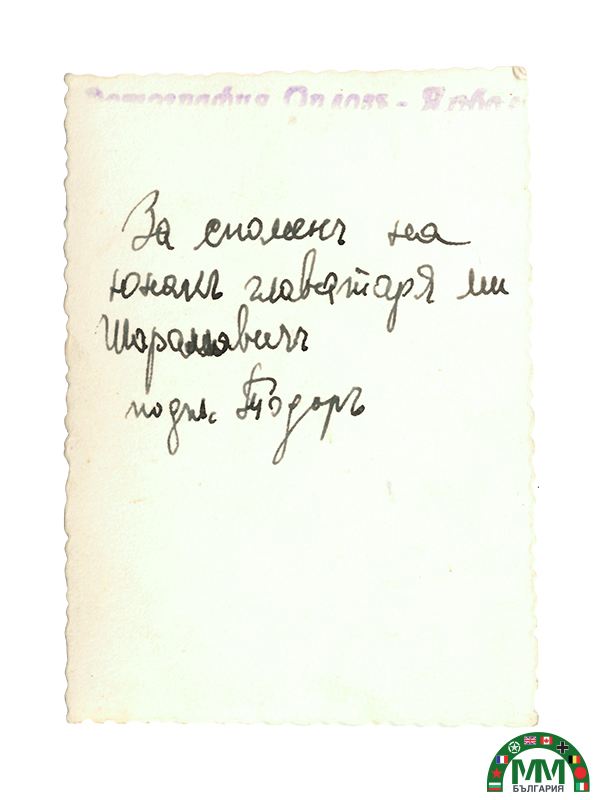 Фотография Орловъ -
За споменъ на
юнакъ главатаря ми
подп. Тодоръ
ММ
БЪЛГАРИЯ